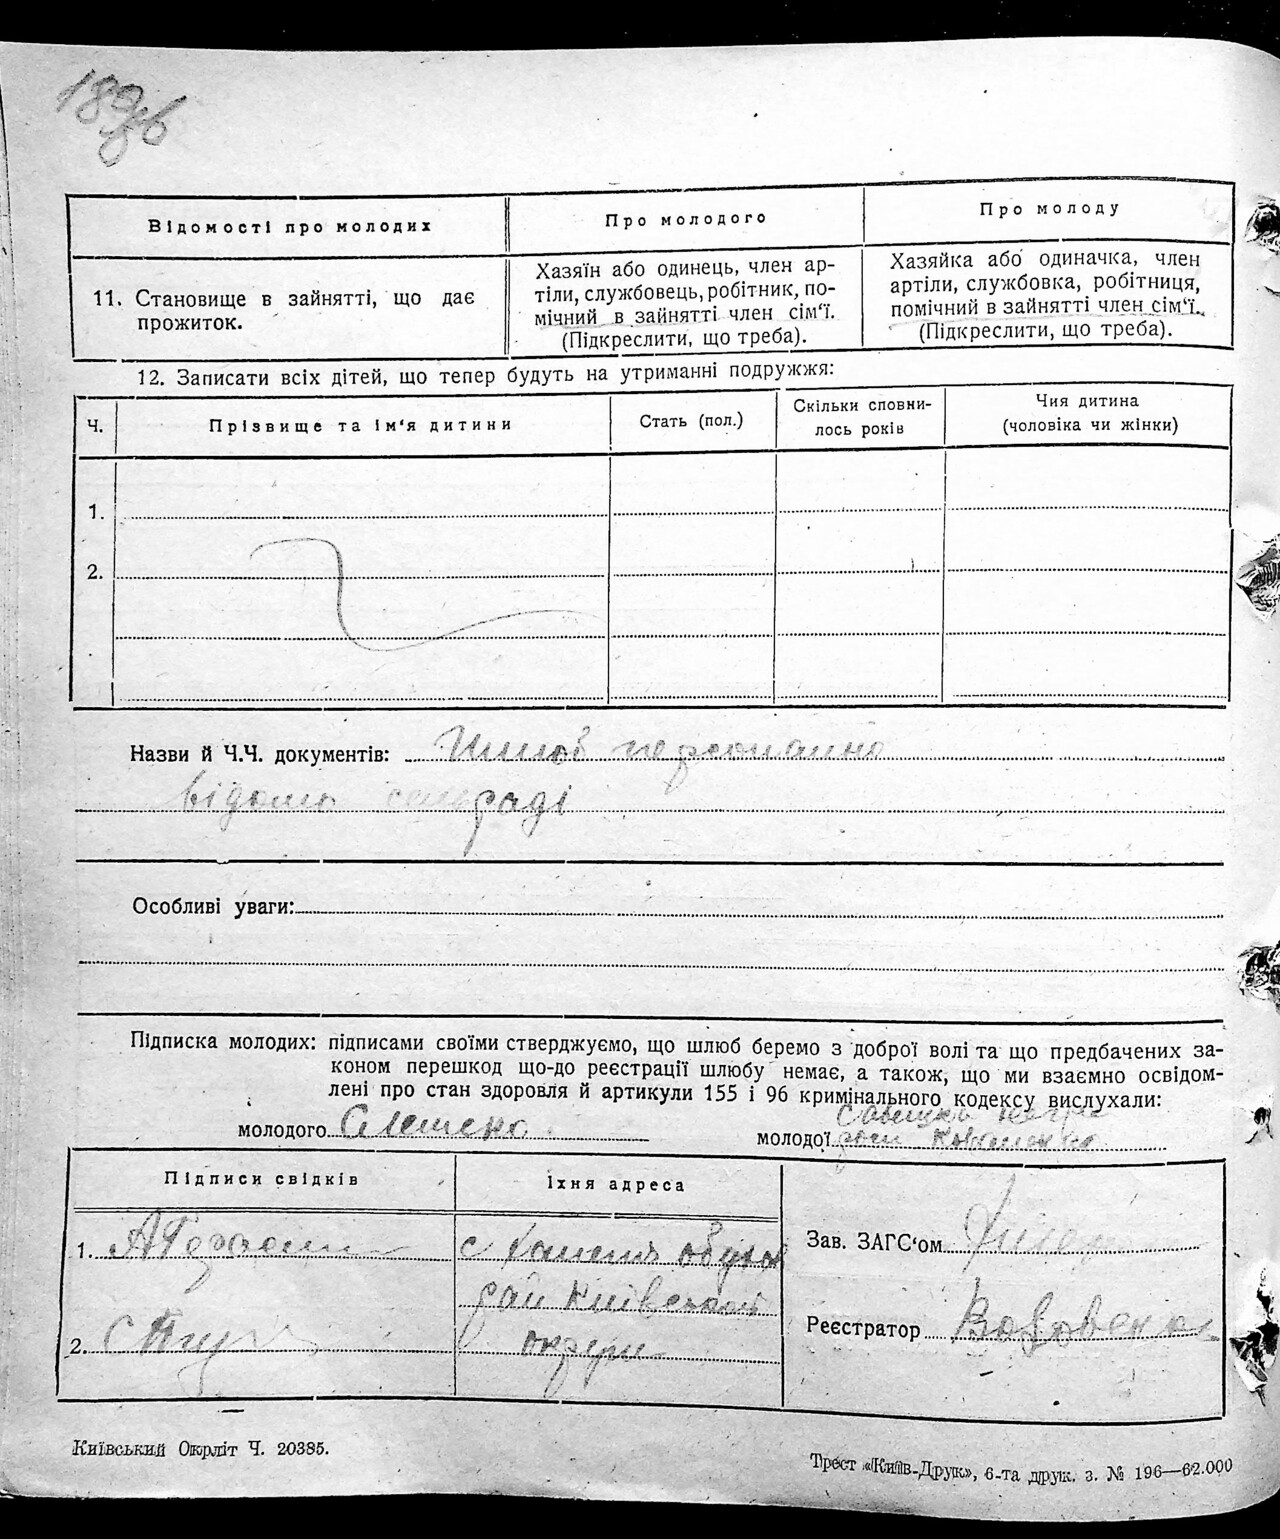 189зв
Відомості про молодих
Про молодого
Про молоду
11. Становище в зайнятті, що дає
прожиток.
Хазяїн або одинець, член ар-
тіли, службовець, робітник, по-
мічний в зайнятті член сім‘ї.
(Підкреслити, що треба).
Хазяйка або одиначка, член
артіли, службовка, робітниця,
помічний в зайнятті член сім‘ї.
(Підкреслити, що треба).
12. Записати всіх дітей, що тепер будуть на утриманні подружжя:
Ч.
Прізвище та ім‘я дитини
Стать (пол.)
Скільки сповни-
лось років
Чия дитина
(чоловіка чи жінки)
1.
2.
Назви й Ч.Ч. документів: Шлюб персонально
відомі сільраді
Особливі уваги:
Підписка молодих: підписами своїми стверджуємо, що шлюб беремо з доброї волі та що предбачених за-
коном перешкод що-до реєстрації шлюбу немає, а також, що ми взаємно освідом-
лені про стан здоровля й артикули 155 і 96 кримінального кодексу вислухали:
молодого
молодої
Підписи свідків
Їхня адреса
1.
с
рай Київської
2.
округи
Зав. ЗАГС‘ом
Реєстратор
Київський Окрліт Ч. 20385.
Трест «Київ-Друк», 6-та друк. з. № 196—62.000